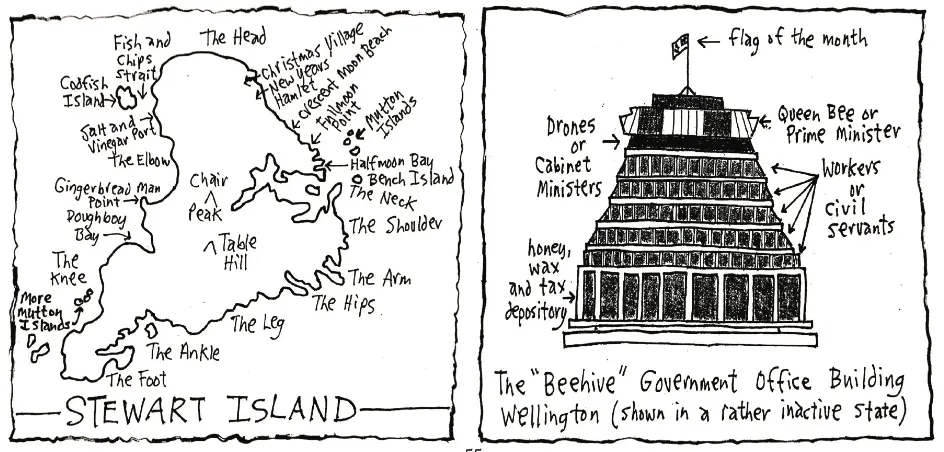 The Head
Fish and
Chips
Strait
Codfish
Island
Salt and
Vinegar Port
The Elbow
Gingerbread Man
Point
Doughboy
Bay
The
Knee
More
Mutton
Islands
Christmas Village
New Years
Hamlet
Crescent Moon Beach
Fullmoon
Point
Mutton
Islands
Halfmoon Bay
Bench Island
The Neck
The Shoulder
Chair
Peak
Table
Hill
The Arm
The Hips
The Leg
The Ankle
The Foot
STEWART ISLAND
flag of the month
Queen Bee or
Prime Minister
Drones
or
Cabinet
Ministers
Workers
or
Civil
servants
honey,
wax
and tax
depository
The "Beehive" Government Office Building
Wellington (shown in a rather inactive state)